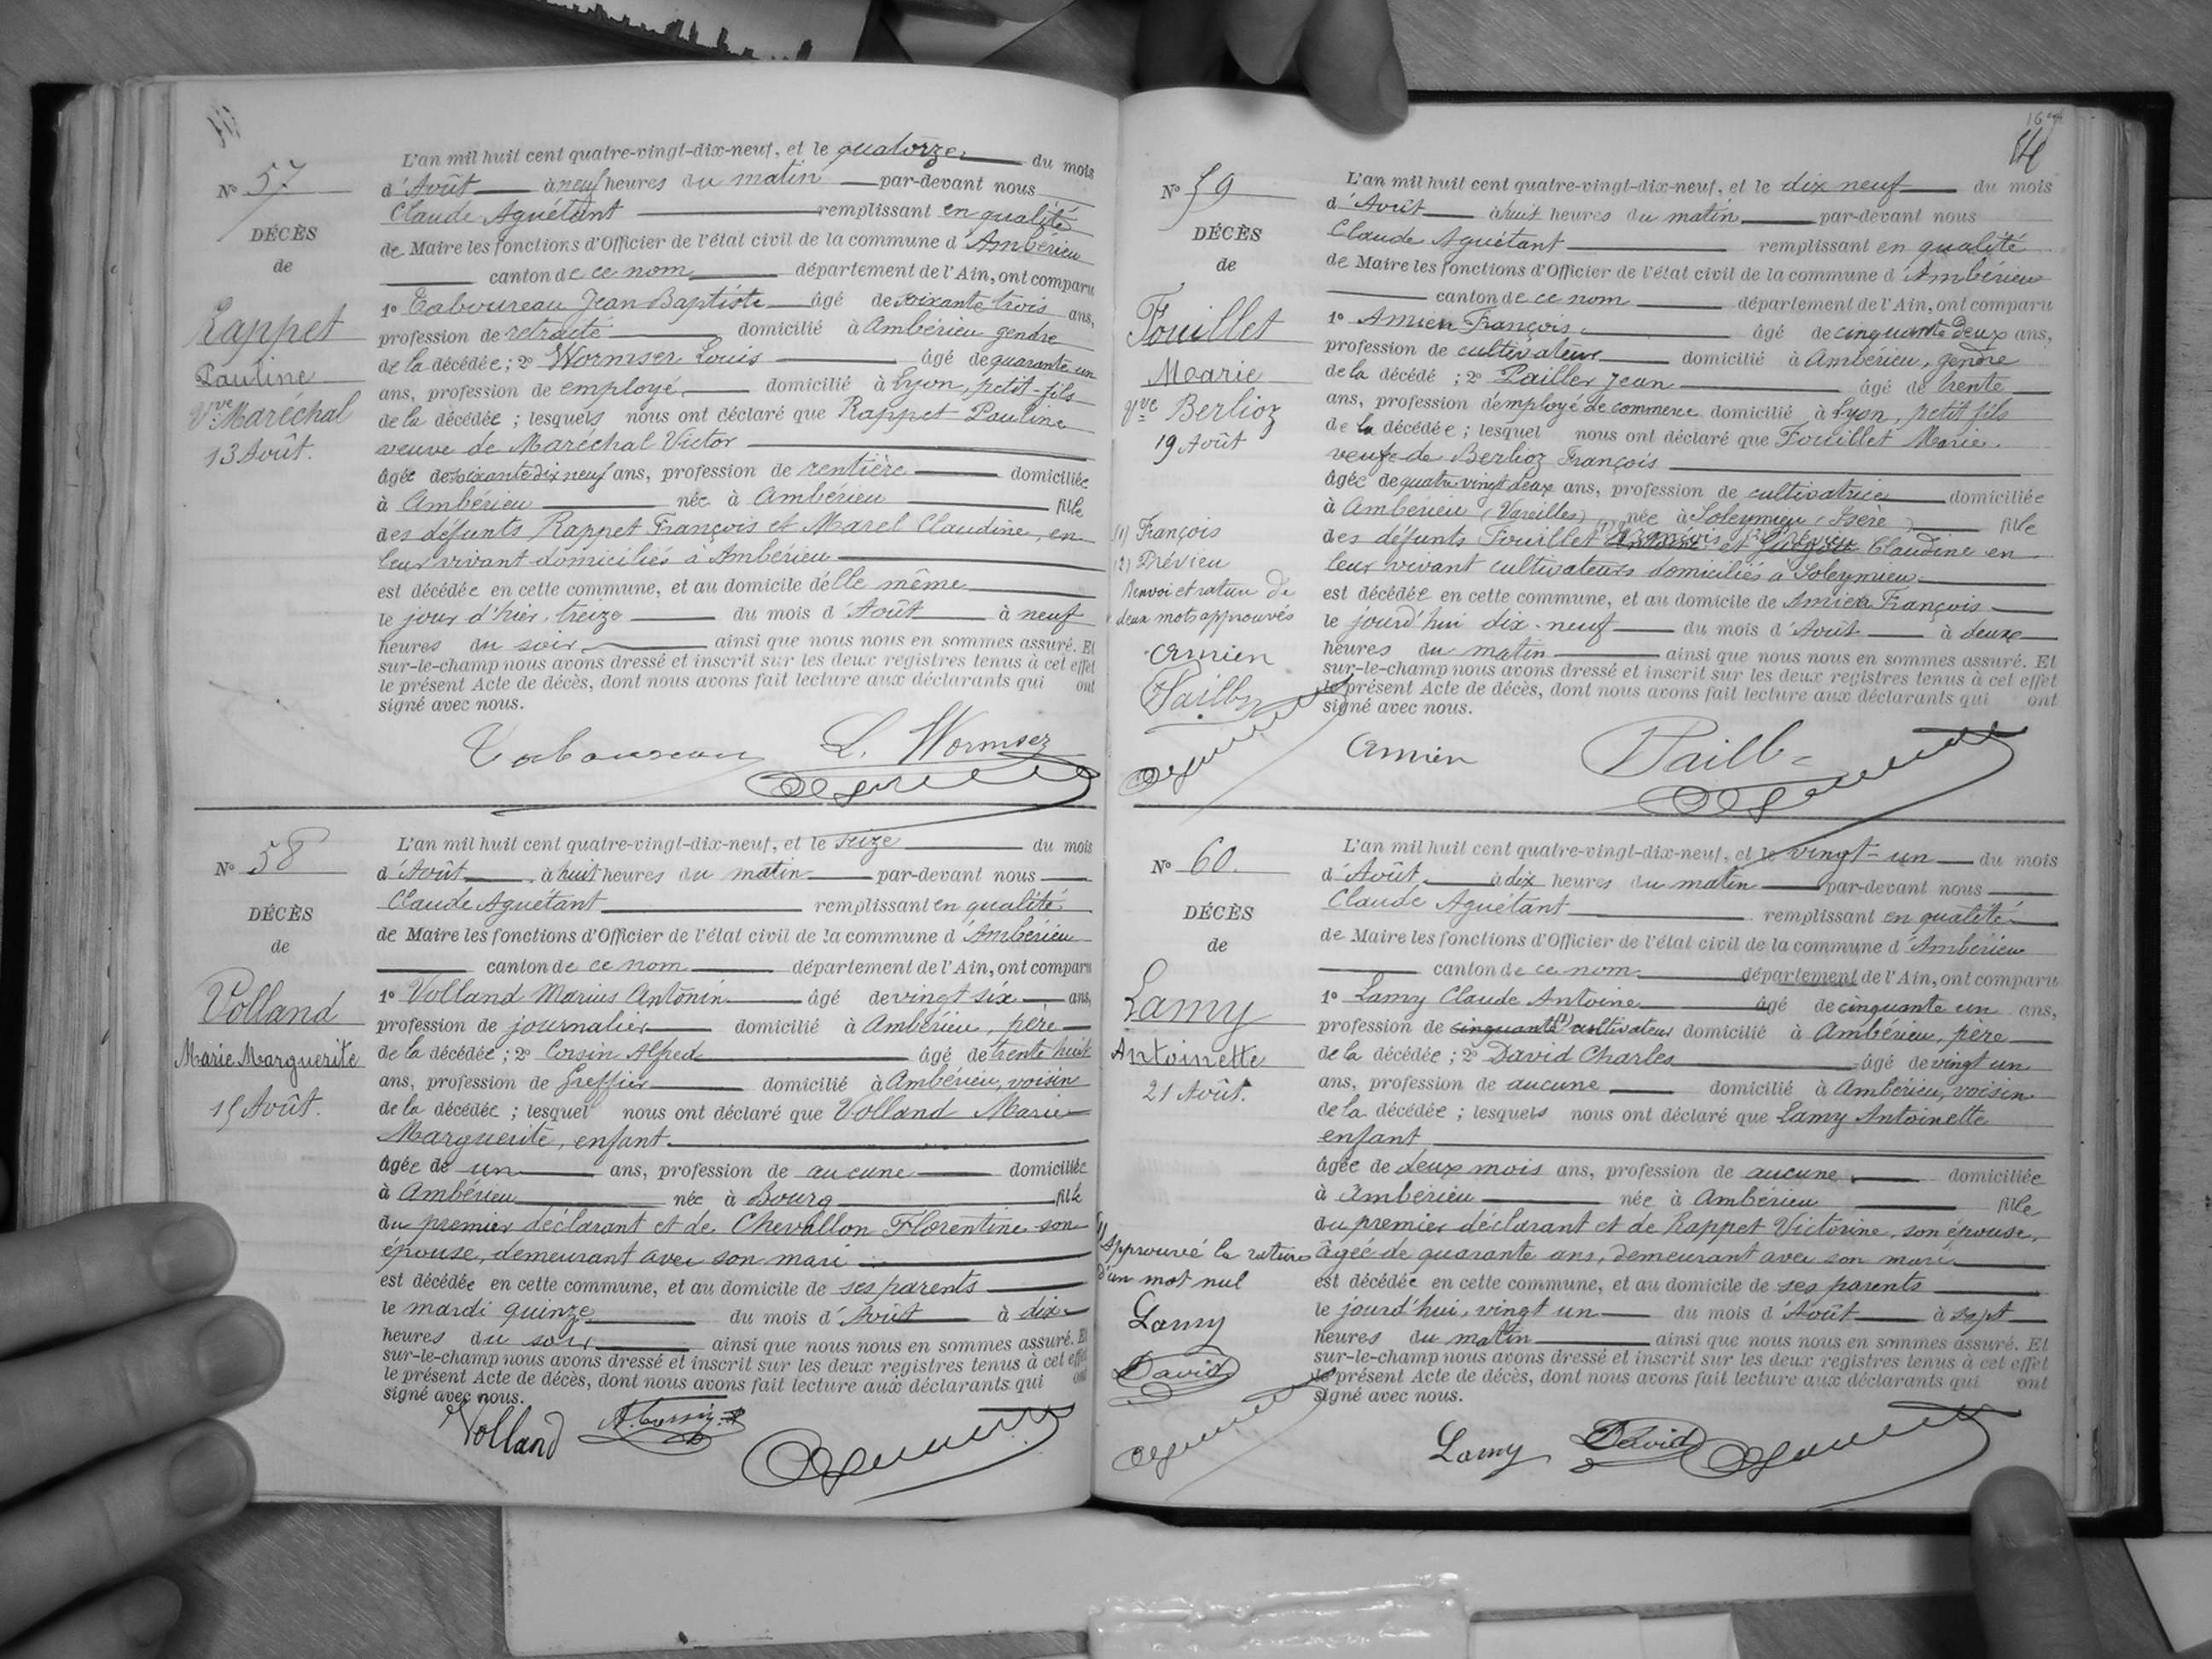 N° 57
DÉCÈS
de
Rappet
Pauline
Vve Maréchal
13 Août.
L'an mil huit cent quatre-vingt-dix-neuf, et le quatorze du mois
d'Août à neuf heures du matin par-devant nous
Claude Aguétant remplissant en qualité
de Maire les fonctions d'Officier de l'état civil de la commune d'Ambérieu
canton de ce nom département de l'Ain, ont comparu
1° Taboureau Jean Baptiste âgé de soixante trois ans,
profession de retraité domicilié à Ambérieu gendre
de la décédée ; 2° Wormser Louis âgé de quarante un
ans, profession de employé domicilié à Lyon, petit-fils
de la décédée ; lesquels nous ont déclaré que Rappet Pauline
veuve de Maréchal Victor
âgée de soixante dix neuf ans, profession de rentière domiciliée
à Ambérieu née à Ambérieu fille
des défunts Rappet François et Marel Claudine, en
leur vivant domiciliés à Ambérieu
est décédée en cette commune, et au domicile d'elle même
le jour d'hier, treize du mois d'Août à neuf
heures du soir ainsi que nous nous en sommes assuré. Et
sur-le-champ nous avons dressé et inscrit sur les deux registres tenus à cet effet
le présent Acte de décès, dont nous avons fait lecture aux déclarants qui ont
signé avec nous.
Taboureau L. Wormser
N° 58
DÉCÈS
de
Volland
Marie Marguerite
15 Août.
L'an mil huit cent quatre-vingt-dix-neuf, et le seize du mois
d'Août à huit heures du matin par-devant nous
Claude Aguétant remplissant en qualité
de Maire les fonctions d'Officier de l'état civil de la commune d'Ambérieu
canton de ce nom département de l'Ain, ont comparu
1° Volland Marius Antonin âgé de vingt six ans,
profession de journalier domicilié à Ambérieu, père
de la décédée ; 2° Corsin Alfred âgé de trente huit
ans, profession de Greffier domicilié à Ambérieu, voisin
de la décédée ; lesquel nous ont déclaré que Volland Marie
Marguerite, enfant
âgée de un ans, profession de aucune domiciliée
à Ambérieu née à Bourg fille
du premier déclarant et de Chevallon Florentine son
épouse, demeurant avec son mari
est décédée en cette commune, et au domicile de ses parents
le mardi quinze du mois d'Août à dix
heures du soir ainsi que nous nous en sommes assuré. Et
sur-le-champ nous avons dressé et inscrit sur les deux registres tenus à cet effet
le présent Acte de décès, dont nous avons fait lecture aux déclarants qui ont
signé avec nous.
Volland A. Corsin
N° 59
DÉCÈS
de
Fouillet
Marie
Vve Berlioz
19 Août
(1) François
(2) Trévieu
Renvoi et rature de
deux mots approuvés
Amien
L'an mil huit cent quatre-vingt-dix-neuf, et le dix neuf du mois
d'Août à huit heures du matin par-devant nous
Claude Aguétant remplissant en qualité
de Maire les fonctions d'Officier de l'état civil de la commune d'Ambérieu
canton de ce nom département de l'Ain, ont comparu
1° Amien François âgé de cinquante deux ans,
profession de cultivateur domicilié à Ambérieu, gendre
de la décédé ; 2° Pailler Jean âgé de trente
ans, profession d'employé de commerce domicilié à Lyon, petit fils
de la décédée ; lesquel nous ont déclaré que Fouillet Marie
veuve de Berlioz François
âgée de quatre vingt deux ans, profession de cultivatrice domiciliée
à Ambérieu (Vareilles) née à Soleymieu (Isère) fille
des défunts Fouillet (1) François et Claudine en
leur vivant cultivateurs domiciliés à Soleymieu
est décédée en cette commune, et au domicile de Amien François
le jourd'hui dix-neuf du mois d'Août à deux
heures du matin ainsi que nous nous en sommes assuré. Et
sur-le-champ nous avons dressé et inscrit sur les deux registres tenus à cet effet
le présent Acte de décès, dont nous avons fait lecture aux déclarants qui ont
signé avec nous.
Amien
N° 60
DÉCÈS
de
Lamy
Antoinette
21 Août.
(1)
Approuvé la rature
d'un mot nul
Lamy
David
L'an mil huit cent quatre-vingt-dix-neuf, et le vingt-un du mois
d'Août à dix heures du matin par-devant nous
Claude Aguétant remplissant en qualité
de Maire les fonctions d'Officier de l'état civil de la commune d'Ambérieu
canton de ce nom département de l'Ain, ont comparu
1° Lamy Claude Antoine âgé de cinquante un ans,
profession de cinquante (1) cultivateur domicilié à Ambérieu, père
de la décédée ; 2° David Charles âgé de vingt un
ans, profession de aucune domicilié à Ambérieu, voisin
de la décédée ; lesquels nous ont déclaré que Lamy Antoinette
enfant
âgée de deux mois ans, profession de aucune domiciliée
à Ambérieu née à Ambérieu fille
du premier déclarant et de Rappet Victorine, son épouse,
âgée de quarante ans, demeurant avec son mari
est décédée en cette commune, et au domicile de ses parents
le jourd'hui, vingt un du mois d'Août à sept
heures du matin ainsi que nous nous en sommes assuré. Et
sur-le-champ nous avons dressé et inscrit sur les deux registres tenus à cet effet
le présent Acte de décès, dont nous avons fait lecture aux déclarants qui ont
signé avec nous.
Lamy David